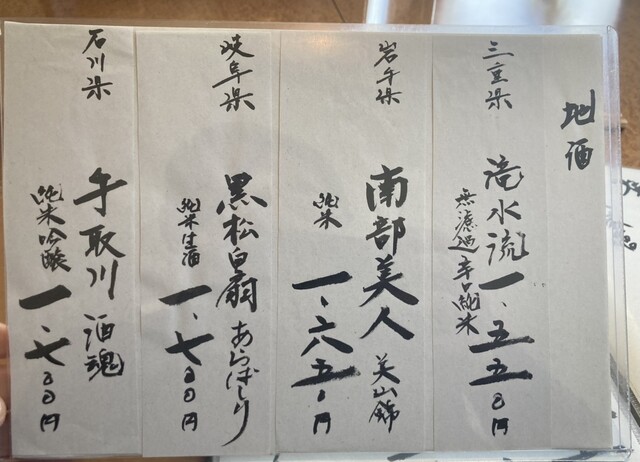 地酒
三重県
滝水流
無濾過 辛口純米
一、五五〇円
岩手県
南部美人 美山錦
純米
一、六五〇円
岐阜県
黒松白扇 あらばしり
純米生酒
一、七〇〇円
石川県
手取川 酒魂
純米吟醸
一、七〇〇円